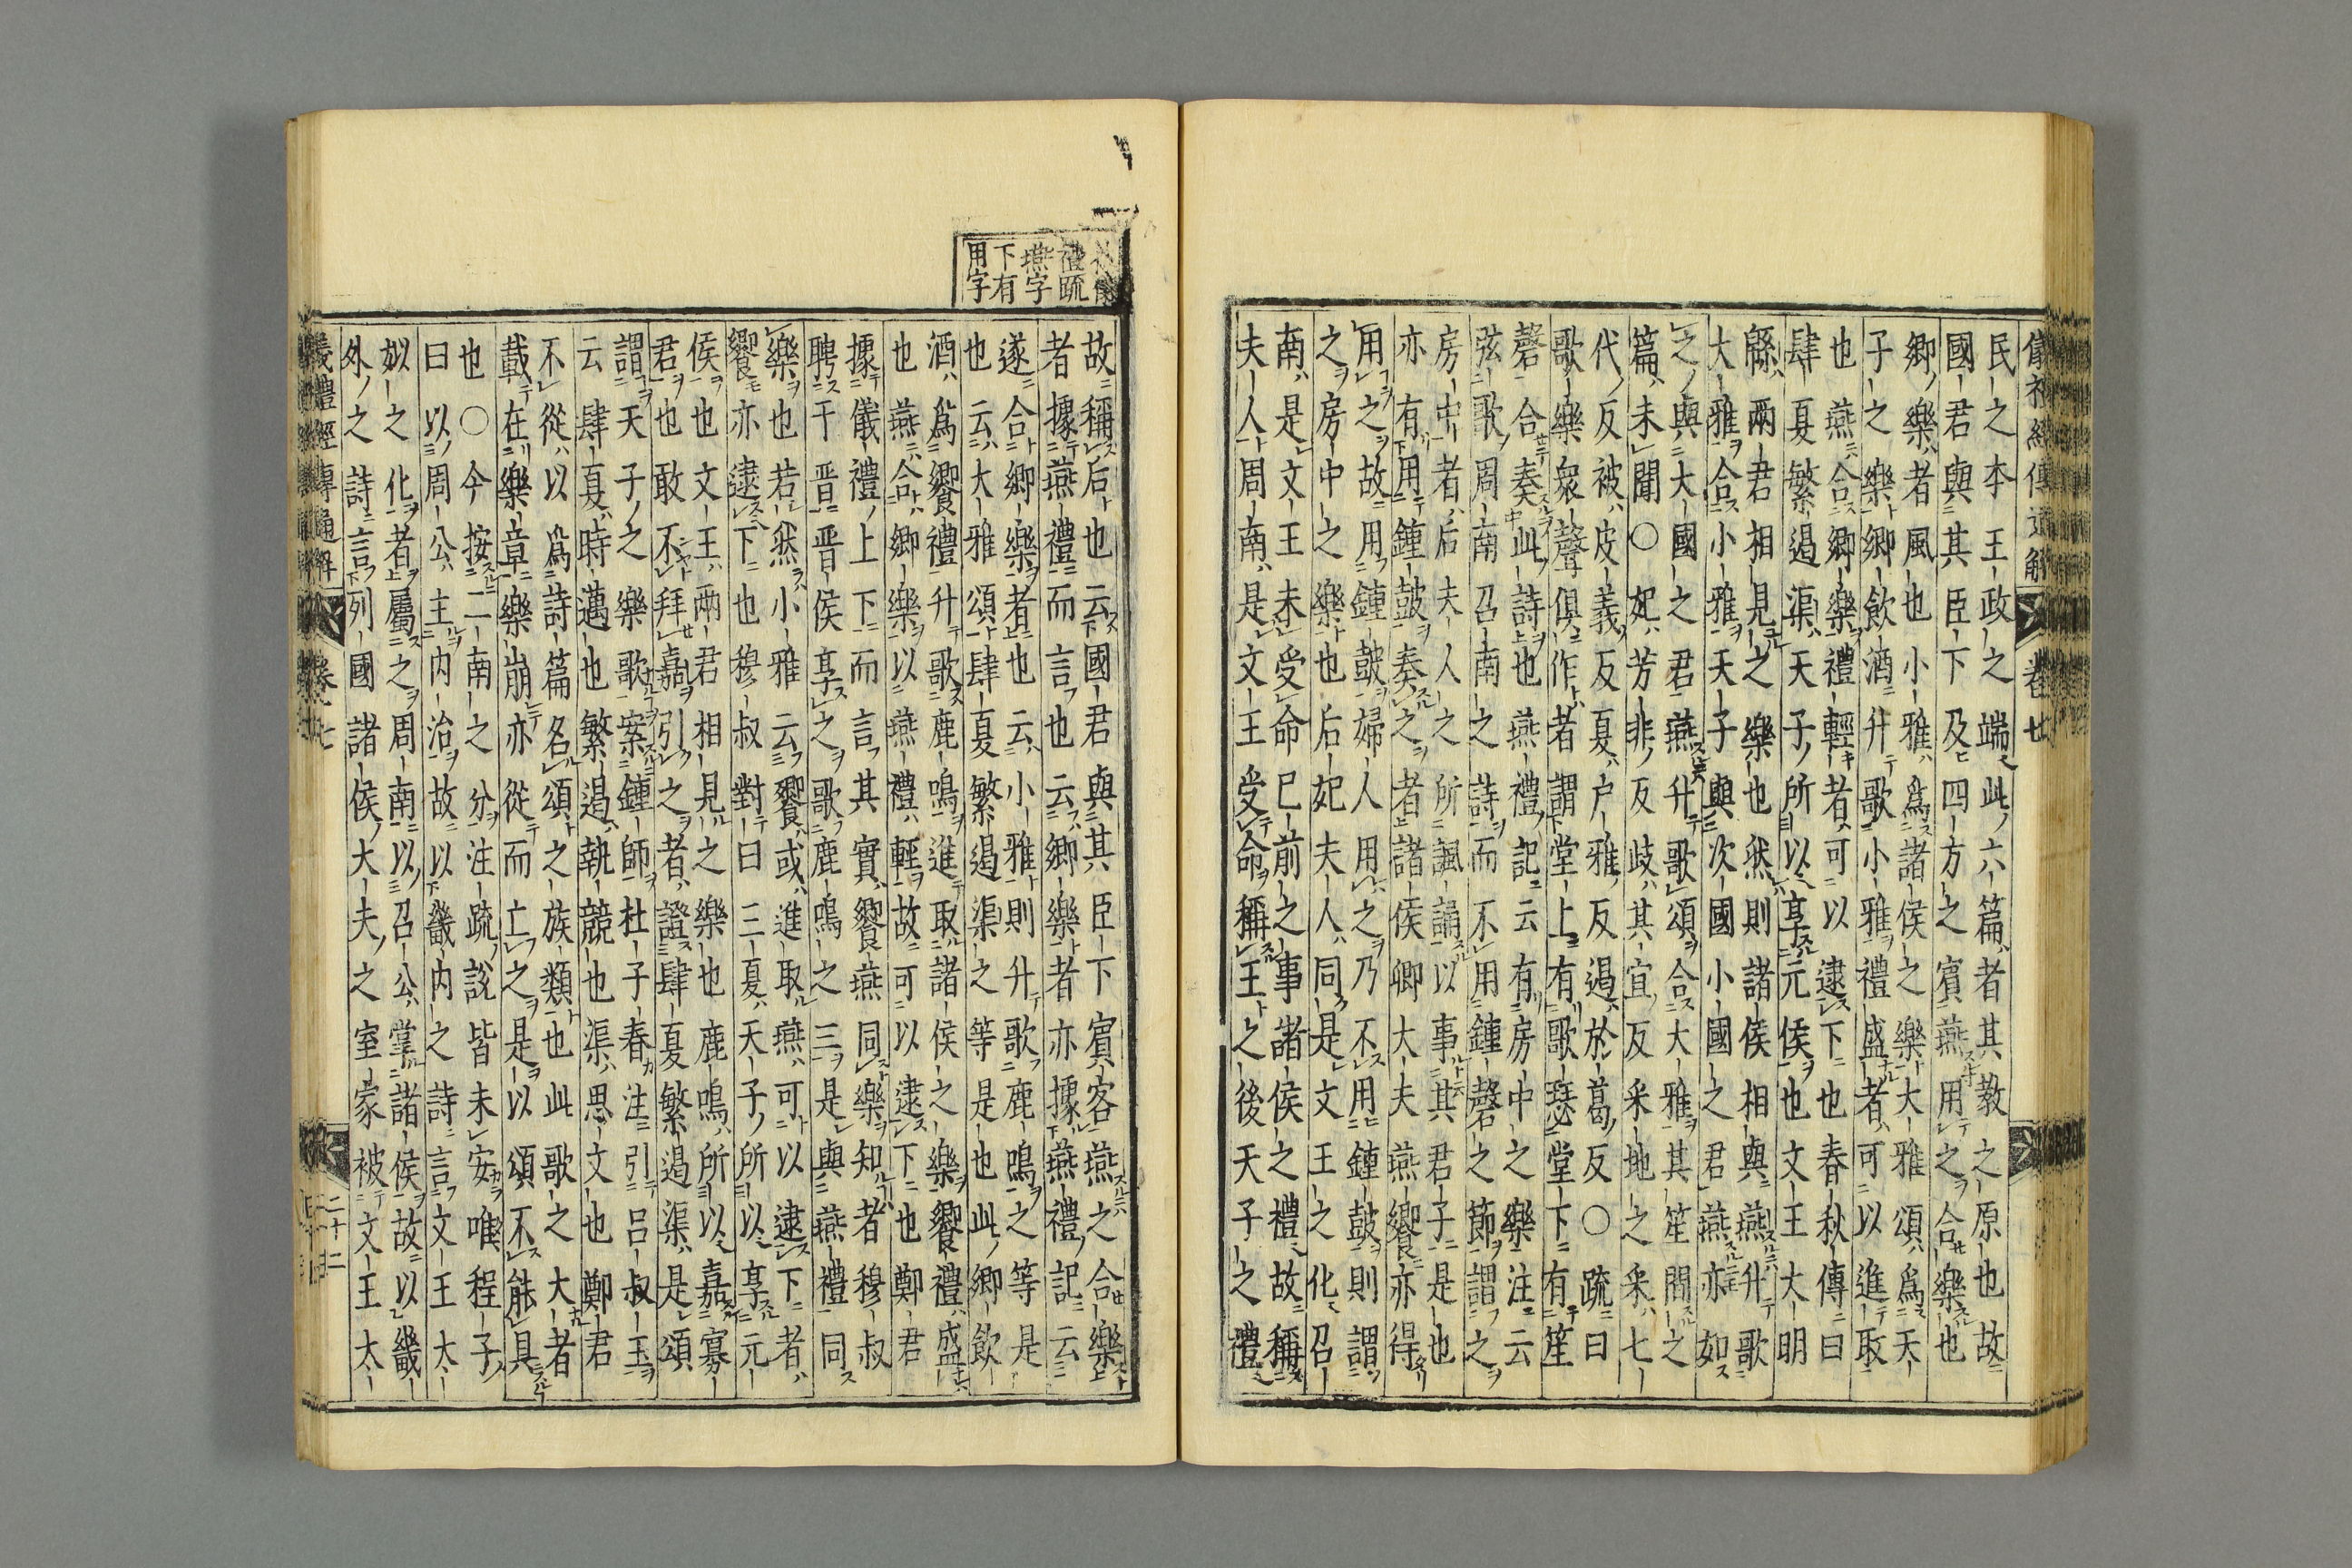 卷七
民之本王政之端此六篇者其教之原也故
國君與其臣下及四方之賓燕用之合樂也
卿樂者風也小雅爲諸侯之樂大雅頌爲天
子之樂卿飲酒升歌小雅禮盛者可以進取
也燕合卿樂禮輕者可以逮下也春秋傳曰
肆夏繁遏渠天子所以享元侯也文王大明
緜兩君相見之樂也然則諸侯相與燕升歌
大雅合小雅天子與次國小國之君燕亦如
之與大國之君燕升歌頌合大雅其笙間之
篇未聞○妃芳非反岐其宜反采地之采七
代反被皮義反夏户雅反遏於葛反○疏曰
歌樂衆聲俱作者謂堂上有歌瑟堂下有笙
磬合奏此詩也燕禮記云有房中之樂注云
弦歌周南召南之詩而不用鍾磬之節謂之
房中者后夫人之所諷誦以事其君子是也
亦有用鍾鼓奏之者諸侯卿大夫燕饗亦得
用之故用鍾鼓婦人用之乃不用鍾鼓則謂
之房中之樂也后妃夫人同是文王之化召
南是文王未受命已前之事諸侯之禮故稱
夫人周南是文王受命稱王之後天子之禮
禮疏
燕字
下有
用字
故稱后也云國君與其臣下賓客燕之合樂
者據燕禮而言也云卿樂者亦據燕禮記云
遂合卿樂者也云小雅則升歌鹿鳴之等是
也云大雅頌肆夏繁遏渠之等是也此卿飲
酒爲饗禮升歌鹿鳴進取諸侯之樂饗禮盛
也燕合卿樂以燕禮輕故可以逮下也鄭君
據儀禮上下而言其實饗燕同樂知者穆叔
聘于晋晋侯享之歌鹿鳴之三是與燕禮同
樂也若然小雅云饗或進取燕可以逮下者
饗亦逮下也穆叔對曰三夏天子所以享元
侯也文王兩君相見之樂也鹿鳴所以嘉寡
君也敢不拜嘉引之者證肆夏繁遏渠是頌
謂天子之樂歌案鍾師杜子春注引呂叔玉
云肆夏時邁也繁遏執競也渠思文也鄭君
不從以爲詩篇名頌之族類也此歌之大者
載在樂章樂崩亦從而亡之是以頌不能具
也○今按二南之分注疏說皆未安唯程子
曰以周公主内治故以畿内之詩言文王太
姒之化者屬之周南以召公掌諸侯故以畿
外之詩言列國諸侯大夫之室家被文王太